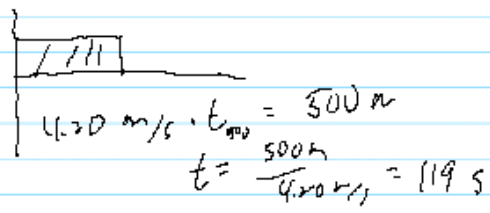 4.20 m/s · t₅₀₀ = 500 m
t = 500m / 4.20 m/s = 119 s